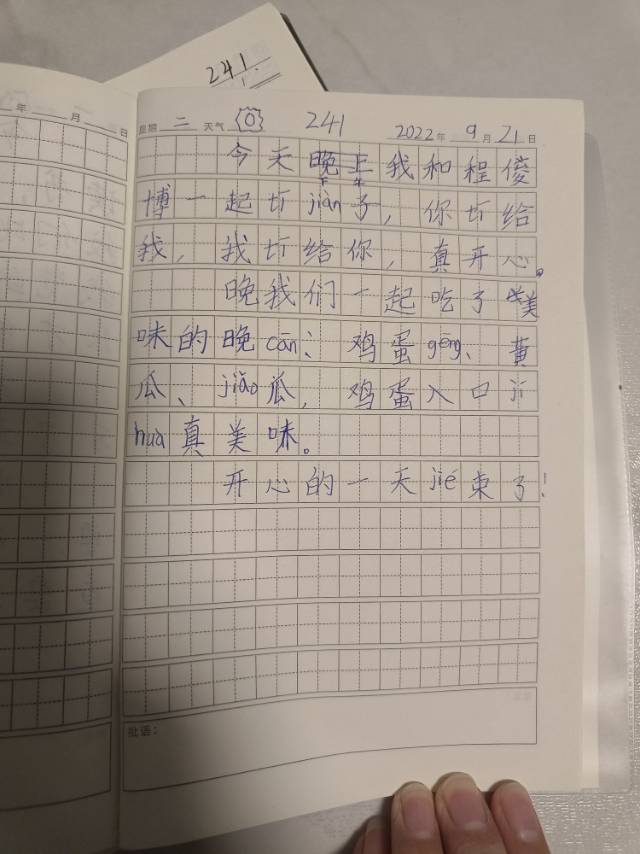 241.
年 月 日
星期 二 天气 241 2022年 9月 21日
今天晚上我和程俊
下午
博一起圻jiàn子，你圻给
我，我圻给你，真开心。
晚我们一起吃了美
味的晚cān：鸡蛋gēng、黄
瓜、jiāo瓜，鸡蛋入口jí
huà真美味。
开心的一天jié束了！
批语：